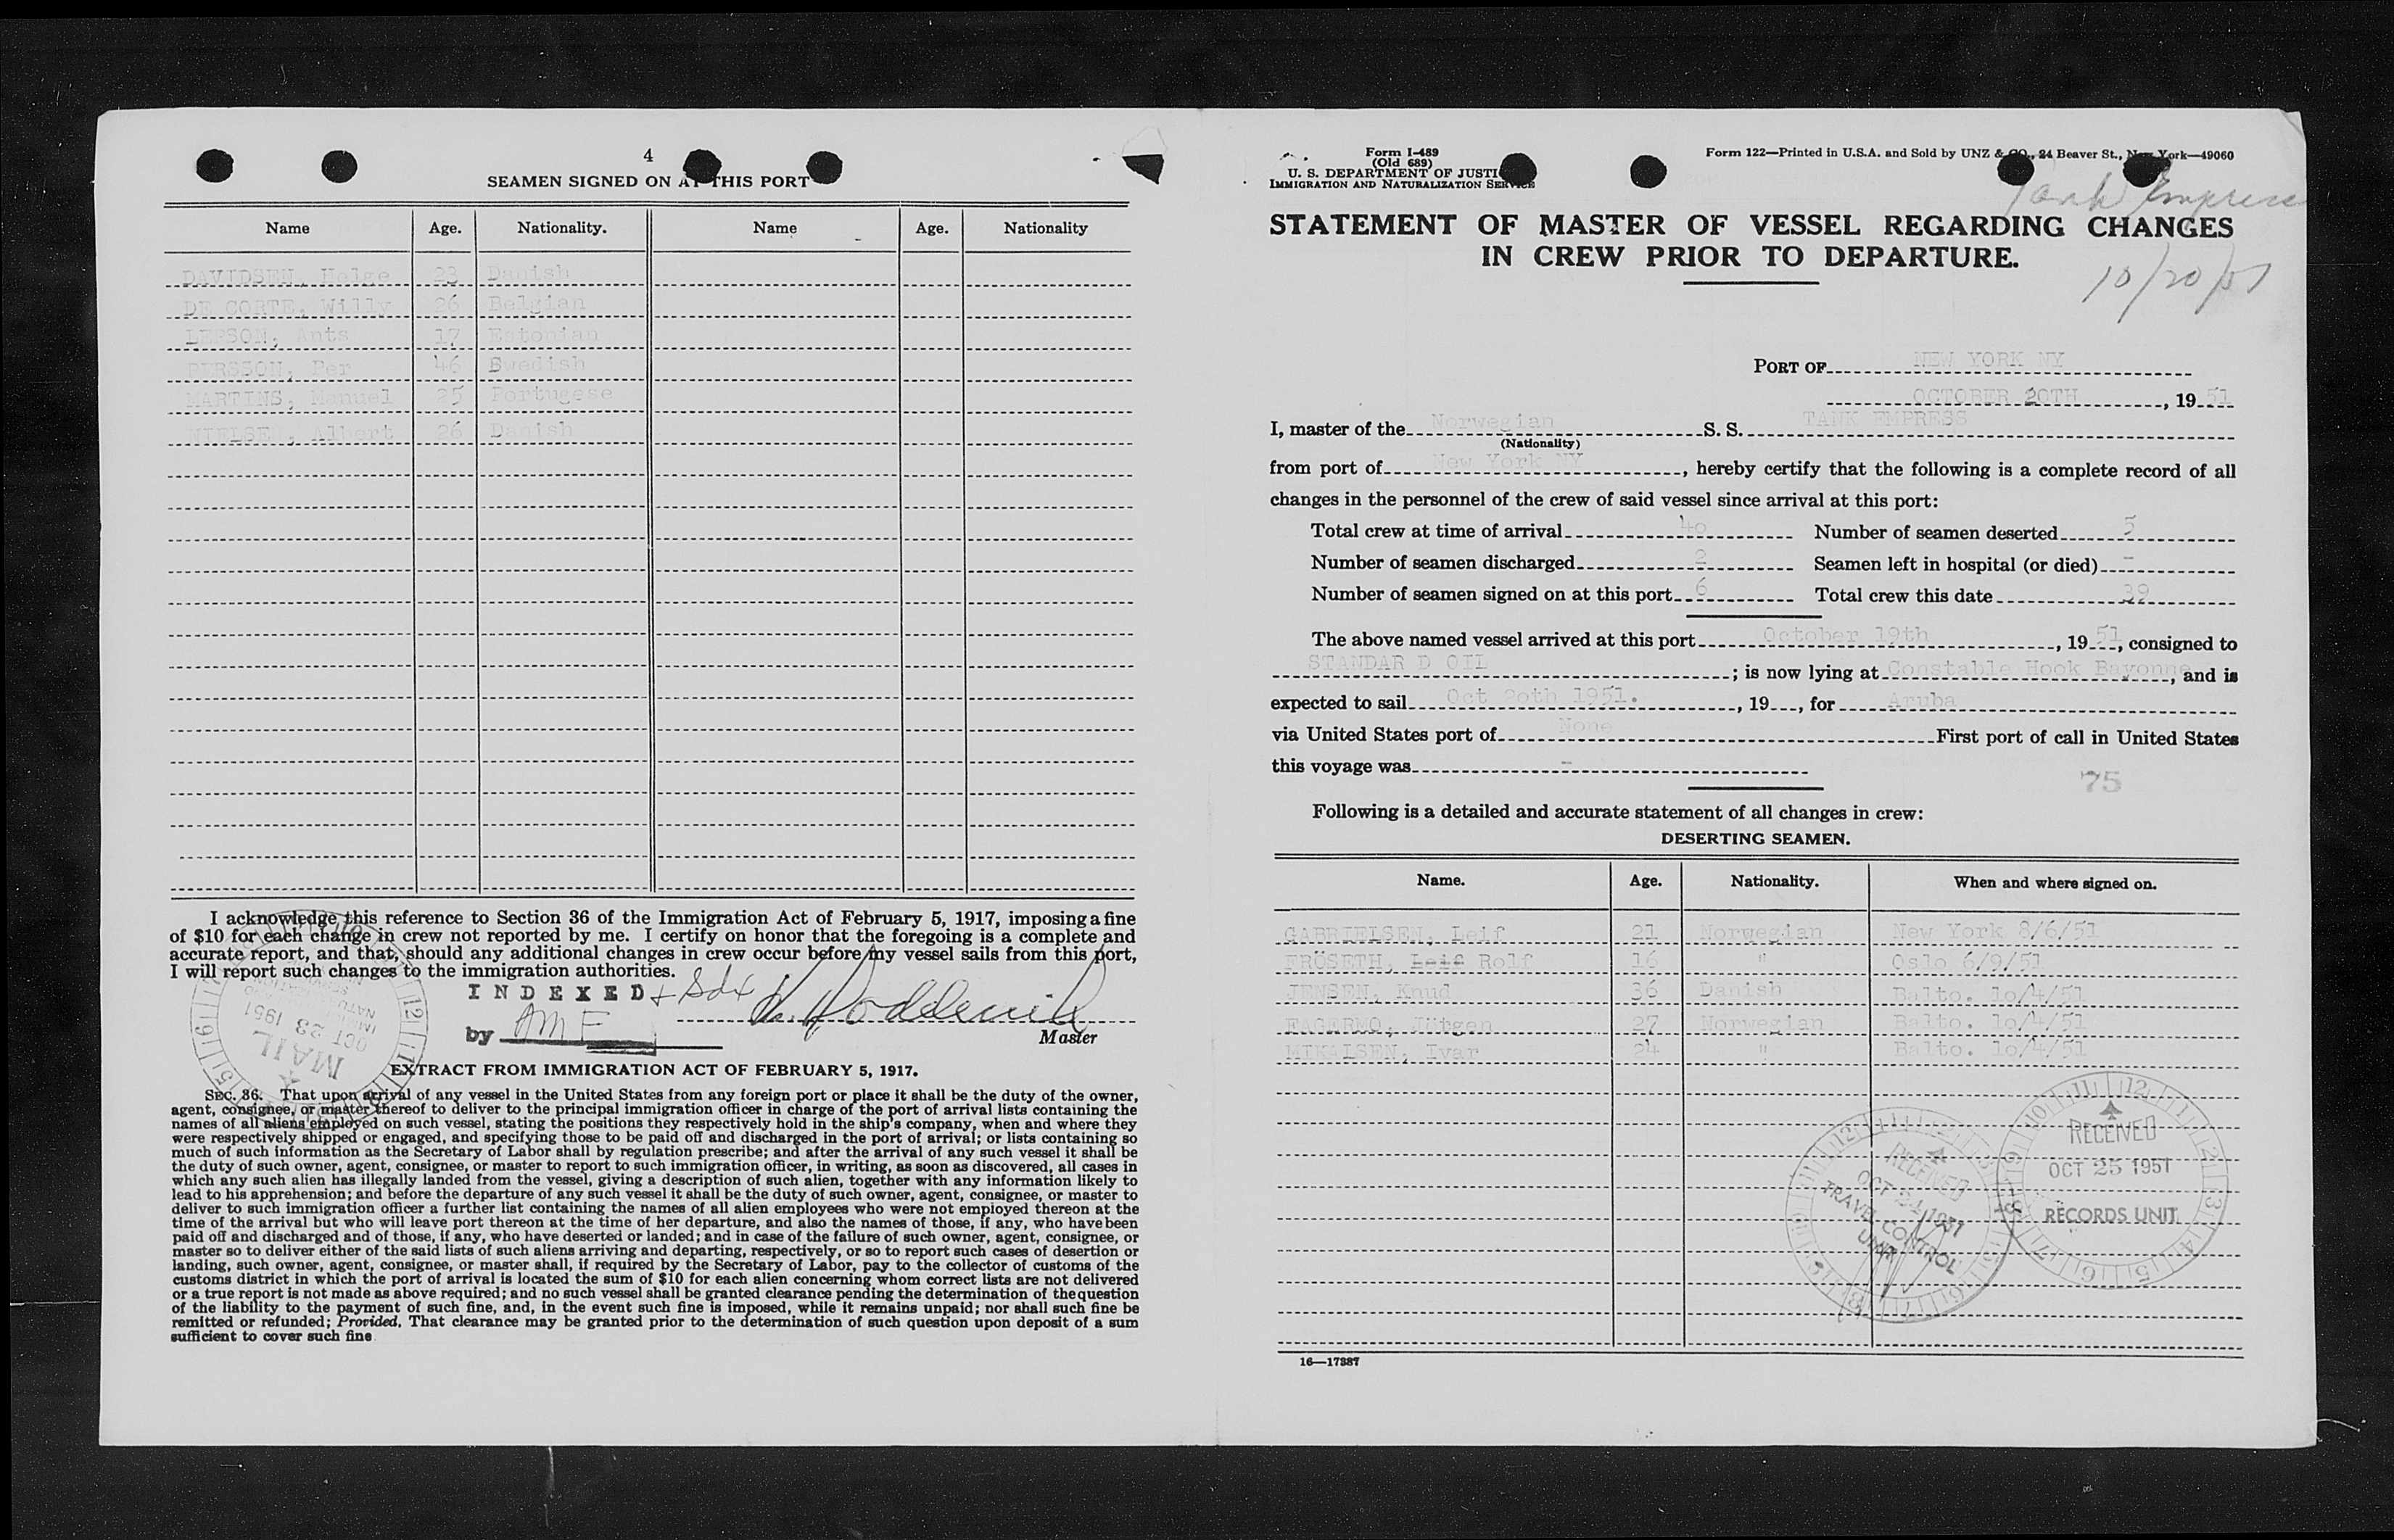 4
SEAMEN SIGNED ON AT THIS PORT
Name Age. Nationality. Name Age. Nationality
DAVIDSEN, Helge 23 Danish
DE CORTE, Willy 26 Belgian
LEPSON, Ants 17 Estonian
PERSSON, Per 46 Swedish
MARTINS, Manuel 25 Portugese
NIELSEN, Albert 26 Danish
I acknowledge this reference to Section 36 of the Immigration Act of February 5, 1917, imposing a fine
of $10 for each change in crew not reported by me. I certify on honor that the foregoing is a complete and
accurate report, and that, should any additional changes in crew occur before my vessel sails from this port,
I will report such changes to the immigration authorities.
INDEXED
by AMF
Master
MAIL
OCT 23 1951
EXTRACT FROM IMMIGRATION ACT OF FEBRUARY 5, 1917.
SEC. 36. That upon arrival of any vessel in the United States from any foreign port or place it shall be the duty of the owner,
agent, consignee, or master thereof to deliver to the principal immigration officer in charge of the port of arrival lists containing the
names of all aliens employed on such vessel, stating the positions they respectively hold in the ship's company, when and where they
were respectively shipped or engaged, and specifying those to be paid off and discharged in the port of arrival; or lists containing so
much of such information as the Secretary of Labor shall by regulation prescribe; and after the arrival of any such vessel it shall be
the duty of such owner, agent, consignee, or master to report to such immigration officer, in writing, as soon as discovered, all cases in
which any such alien has illegally landed from the vessel, giving a description of such alien, together with any information likely to
lead to his apprehension; and before the departure of any such vessel it shall be the duty of such owner, agent, consignee, or master to
deliver to such immigration officer a further list containing the names of all alien employees who were not employed thereon at the
time of the arrival but who will leave port thereon at the time of her departure, and also the names of those, if any, who have been
paid off and discharged and of those, if any, who have deserted or landed; and in case of the failure of such owner, agent, consignee, or
master so to deliver either of the said lists of such aliens arriving and departing, respectively, or so to report such cases of desertion or
landing, such owner, agent, consignee, or master shall, if required by the Secretary of Labor, pay to the collector of customs of the
customs district in which the port of arrival is located the sum of $10 for each alien concerning whom correct lists are not delivered
or a true report is not made as above required; and no such vessel shall be granted clearance pending the determination of the question
of the liability to the payment of such fine, and, in the event such fine is imposed, while it remains unpaid; nor shall such fine be
remitted or refunded; Provided, That clearance may be granted prior to the determination of such question upon deposit of a sum
sufficient to cover such fine
Form I-489
(Old 689)
U. S. DEPARTMENT OF JUSTICE
IMMIGRATION AND NATURALIZATION SERVICE
Form 122—Printed in U.S.A. and Sold by UNZ & CO., 24 Beaver St., New York—49060
Tank Empress
STATEMENT OF MASTER OF VESSEL REGARDING CHANGES
IN CREW PRIOR TO DEPARTURE.
10/20/51
PORT OF NEW YORK NY
OCTOBER 20TH, 19 51
I, master of the Norwegian S. S. TANK EMPRESS
(Nationality)
from port of New York NY, hereby certify that the following is a complete record of all
changes in the personnel of the crew of said vessel since arrival at this port:
Total crew at time of arrival 40 Number of seamen deserted 5
Number of seamen discharged 2 Seamen left in hospital (or died) -
Number of seamen signed on at this port 6 Total crew this date 39
The above named vessel arrived at this port October 19th, 19 51, consigned to
STANDAR D OIL; is now lying at Constable Hook Bayonne, and is
expected to sail Oct 20th 1951., 19, for Aruba
via United States port of None First port of call in United States
this voyage was -
75
Following is a detailed and accurate statement of all changes in crew:
DESERTING SEAMEN.
Name. Age. Nationality. When and where signed on.
GABRIELSEN, Leif 21 Norwegian New York 8/6/51
FRÖSETH, Leif Rolf 16 " Oslo 6/9/51
JENSEN, Knud 36 Danish Balto. 10/4/51
FAGERMO, Jörgen 27 Norwegian Balto. 10/4/51
MIKALSEN, Ivar 24 " Balto. 10/4/51
RECEIVED
OCT 24 1951
TRAVEL CONTROL
UNIT
RECEIVED
OCT 25 1951
RECORDS UNIT
16—17387